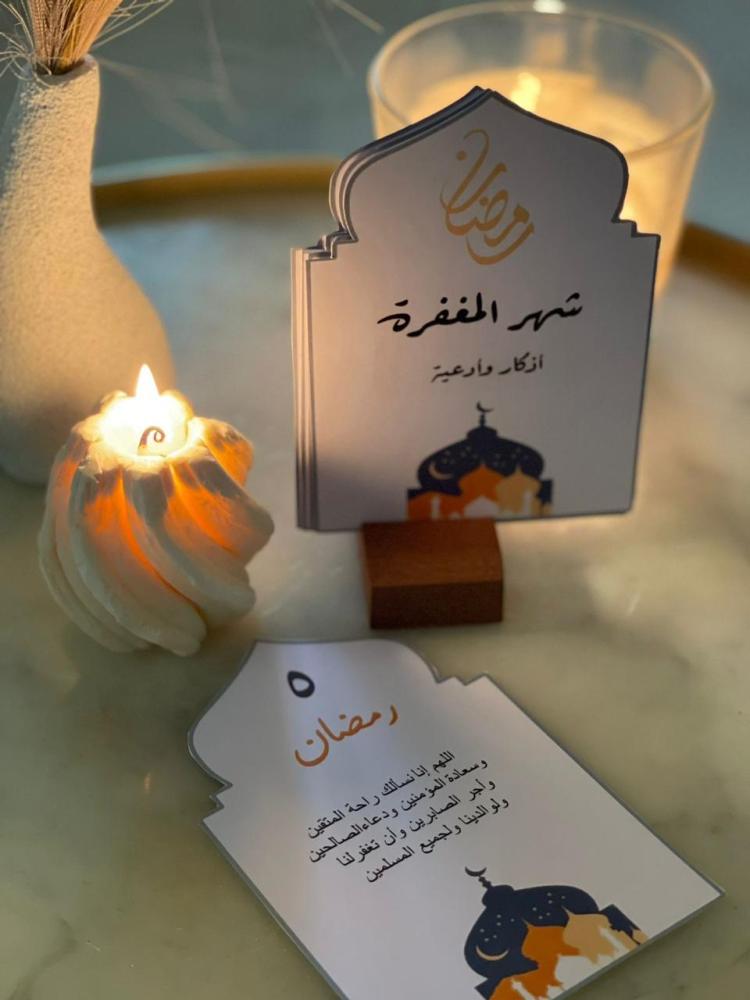 رمضان
شهر المغفرة
أذكار وأدعية
٥
رمضان
اللهم إنا نسألك راحة المتقين
وسعادة المؤمنين ودعاء الصالحين
وأجر الصابرين وأن تغفر لنا
ولوالدينا ولجميع المسلمين